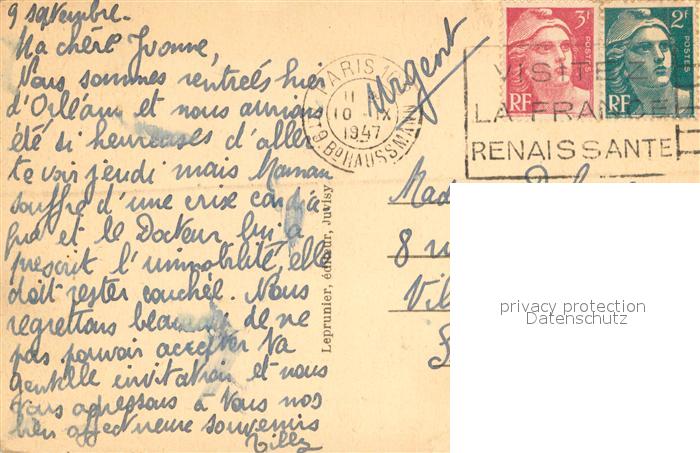 9 septembre.
Ma chère Yvonne,
Nous sommes rentrés hier
d'Orléans et nous aurions
été si heureuses d'aller
te voir jeudi mais Maman
souffre d'une crise cardia
que et le Docteur lui a
prescrit l'immobilité, elle
doit rester couchée. Nous
regrettons beaucoup de ne
pas pouvoir accepter ta
gentille invitation et nous
vous adressons à vous nos
bien affectueux souvenirs
Urgent
PARIS
11
10 - IX
1947
Bd HAUSSMANN
3f
POSTES
RF
2f
POSTES
RF
VISITEZ
LA FRANCE
RENAISSANTE
Leprunier, éditeur, Juvisy
Mad
8 ru
Vil
privacy protection
Datenschutz